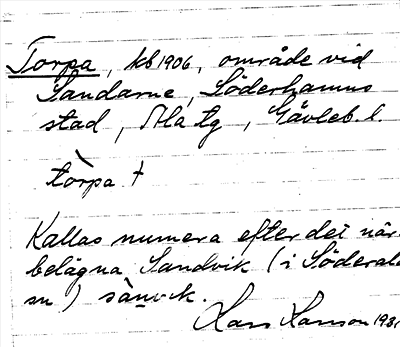 Torpa, kb 1906, område vid
Sandarne, Söderhamns
stad, Ala tg, Gävleb. l.
tòrpa †
Kallas numera efter det när-
belägna Sandvik (i Söderala
sn) sànvik.
1931